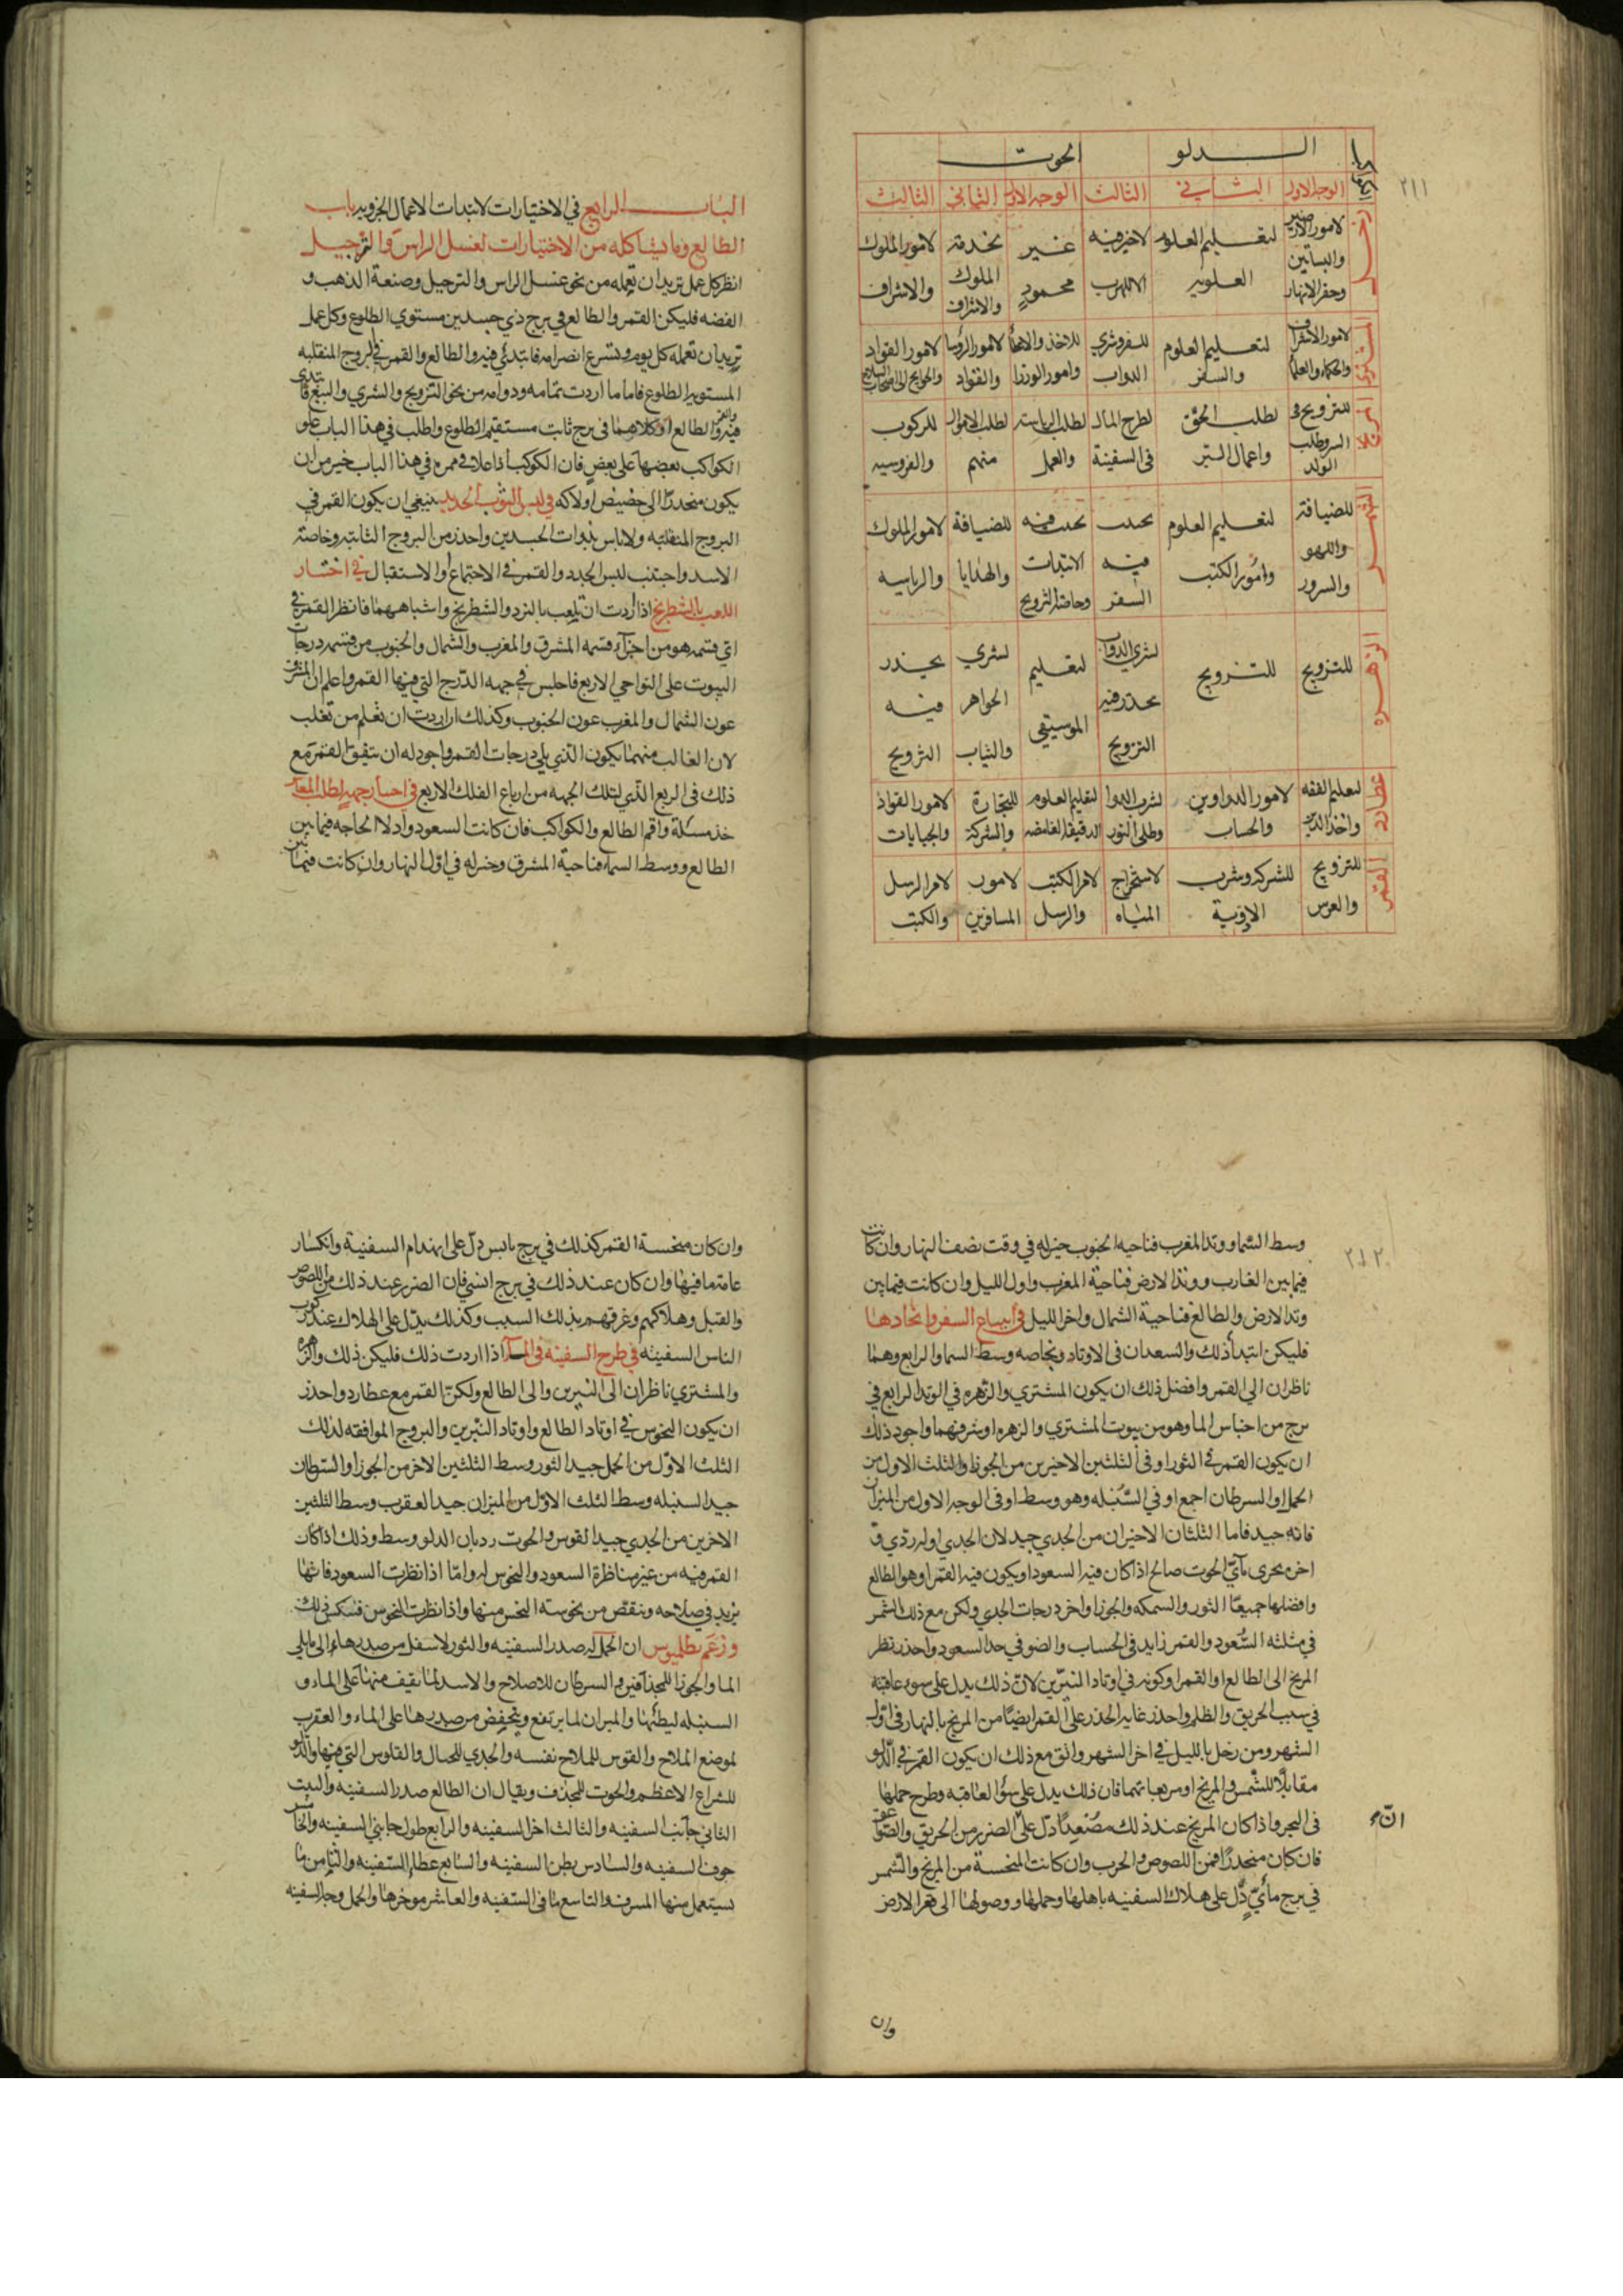 ٢١١
الدلو الحوت
الوجه الاول الثاني الثالث الوجه الاول الثاني الثالث
زحل
لامور الارضين والبساتين وحفر الانهار
لتعليم العلوم العلوية
لاخير فيه الا للهرب
غير محمود
لخدمة الملوك والاشراف
لامور الملوك والاشراف
المشتري
لامور الاشراف والحكماء والعلماء
لتعليم العلوم والسفر
للسفر وشري الدواب
للاخذ والاعطاء وامور الوزرا
لامور الرؤسا والقواد
لامور القواد والحوايج الى اصحاب السلاح
المريخ
للتزويج في السر وطلب الولد
لطلب الحق واعمال السر
لطرح المال في السفينة
لطلب الرياسة والعمل
لطلب الاموال منهم
للركوب والفروسيه
الشمس
للضيافة واللهو والسرور
لتعليم العلوم وامور الكتب
يحدث فيه السفر
يحدث فيه الابتدات وخاصة التزويج
للضيافة والهدايا
لامور الملوك والرياسه
الزهره
للتزويج
للتزويج
لشري الدواب يحذر فيه التزويج
لتعليم الموسيقي
لشري الجواهر والثياب
يحذر فيه التزويج
عطارد
لتعليم الفقه واخذ الادب
لامور الدواوين والحساب
لشرب الدوا وطلى النور
لتعليم العلوم الدقيقة الغامضه
للتجارة والشركة
لامور القواد والجبايات
القمر
للتزويج والعرس
للشركه وشرب الادوية
لاستخراج المياه
لامر الكتب والرسل
لامور المسافرين
لامر الرسل والكتب
الباب الرابع في الاختيارات لابتدات الاعمال الجزويه باب
الطالع وما يشاكله من الاختيارات لغسل الراس والترجيل
انظر كل عمل تريد ان تعمله من نحو غسل الراس والترجيل وصنعة الذهب و
الفضه فليكن القمر والطالع في برج ذي جسدين مستوي الطلوع وكل عمل
تريد ان تعمله كل يوم وتسرع انصرامه فابتدئ فيه والطالع والقمر في البروج المنقلبه
المستويه الطلوع فاما ما اردت تمامه ودوامه من نحو التزويج والشري والبيع فابتدئ
فيه والقمر والطالع او كلاهما في برج ثابت مستقيم الطلوع واطلب في هذا الباب علو
الكواكب بعضها على بعض فان الكوكب اذا علا في ممره في هذا الباب خير من ان
يكون منحدرا الى حضيض اولاكه في لبس الثوب الجديد ينبغي ان يكون القمر في
البروج المنقلبه ولاباس بذوات الجسدين واحذر من البروج الثابته وخاصة
الاسد واجتنب لبس الجدد والقمر في الاجتماع او الاستقبال في اختيار
اللعب بالشطرنج اذا اردت ان تلعب بالنرد والشطرنج واشباههما فانظر القمر في
اي قسمه هو من اجزاء قسمه المشرق والمغرب والشمال والجنوب من قسمه درجات
البيوت على النواحي الاربع فاجلس في جهه الدرج التي فيها القمر واعلم ان المشرق
عون الشمال والمغرب عون الجنوب وكذلك ان اردت ان تعلم من تغلب
لان الغالب منهما يكون الذي يلي درجات القمر واجود له ان يتفق القمر مع
ذلك في الربع الذي لتلك الجهه من ارباع الفلك الاربع في اختيار جهه لطلب المعاش
خذ مسئلة واقم الطالع والكواكب فان كانت السعود وادلا الحاجه فيما بين
الطالع ووسط السماء فناحية المشرق وخيرله في اول النهار وان كانت فيما بين
٢١٢
وسط السما ووتد المغرب فناحيه الجنوب خيرله في وقت نصف النهار وان كانت
فيما بين الغارب ووتد الارض فناحية المغرب واول الليل وان كانت فيما بين
وتد الارض والطالع فناحية الشمال واخر الليل في ابتياع السفر واتخاذها
فليكن ابتدا ذلك والسعدان في الاوتاد وبخاصه وسط السما والرابع وهما
ناظران الى القمر وافضل ذلك ان يكون المشتري والزهره في الوتد الرابع في
برج من اجناس الما وهو من بيوت المشتري والزهره او شرفهما واجود ذلك
ان يكون القمر في الثور او في الثلثين الاخيرين من الجوزا والثلث الاول من
الحمل او السرطان اجمع او في السنبله وهو وسط او في الوجه الاول من الميزان
فانه جيد فاما الثلثان الاخيران من الجدي جيد لان الجدي اوله ردي في
اخره بحرى مآئي الحوت صالح اذا كان فيه السعود او يكون فيه القمر او هو الطالع
وافضلها جميعا الثور والسمكه والجوزا واخر درجات الجدي ولكن مع ذلك الشمس
في مثلثه السعود والقمر زايد في الحساب والضو في حد السعود واحذر نظر
المريخ الى الطالع او القمر او كونه في اوتاد النيرين لان ذلك يدل على سوء عاقبته
في سبب الحريق والظلم واحذر غاية الحذر على القمر ايضا من المريخ بالنهار في اول
الشهر ومن زحل بالليل في اخر الشهر واتق مع ذلك ان يكون القمر في الدلو
مقابلا للشمس والمريخ او مربعاتهما فان ذلك يدل على سؤ العاقبه وطرح حملها
في البحر واذا كان المريخ عند ذلك مصعدا دل على الضرر من الحريق والصواعق
فان كان منحدرا فمن اللصوص والحرب وان كانت المنحسة من المريخ والشمس
في برج مائي دل على هلاك السفينه باهلها وحملها ووصولها الى قعر الارض
وان
وان كان منحسة القمر كذلك في برج يابس دل على انهدام السفينة وانكسار
عامة ما فيها وان كان عند ذلك في برج انسي فان الضرر عند ذلك من اللصوص
والقتل وهلاكهم وغرقهم بذلك السبب وكذلك يدل على الهلاك عند ركوب
الناس السفينه في طرح السفينه في الماء اذا اردت ذلك فليكن ذلك والزهره
والمشتري ناظران الى النيرين والى الطالع ولكن القمر مع عطارد واحذر
ان يكون النحوس في اوتاد الطالع واوتاد النيرين والبروج الموافقه لذلك
الثلث الاول من الحمل جيد الثور وسط الثلثين الاخر من الجوزا والسرطان
جيد السنبله وسط الثلث الاول من الميزان جيد العقرب وسط الثلثين
الاخرين من الجدي جيد القوس والحوت رديان الدلو وسط وذلك اذا كان
القمر فيه من غير مناظرة السعود والنحوس له واما اذا نظرت السعود فانها
يزيد في صلاحه وينقص من نحوسته النحس منها واذا نظرت النحوس فسكس ذلك
وزعم بطلميوس ان الحمل له صدر السفينه والثور لاسفل من صدرها الى ما يلي
الما والجوزا للمجذافين والسرطان للاصلاح والاسد لما يقيف منها على الماء و
السنبله لبطنها والميزان لما يرتفع وينخفض من صدرها على الماء والعقرب
لموضع الملاح والقوس للملاح نفسه والجدي للحبال والقلوس التي فيها والدلو
للشراع الاعظم والحوت للمجذف ويقال ان الطالع صدر السفينه والبيت
الثاني جانب السفينه والثالث اخر السفينه والرابع طول جانبي السفينه والخامس
جوف السفينه والسادس بطن السفينه والسابع عطا السفينه والثامن ما
يستعمل منها المسرف والتاسع ما في السفينه والعاشر موخرها والحمل وجر السفينه